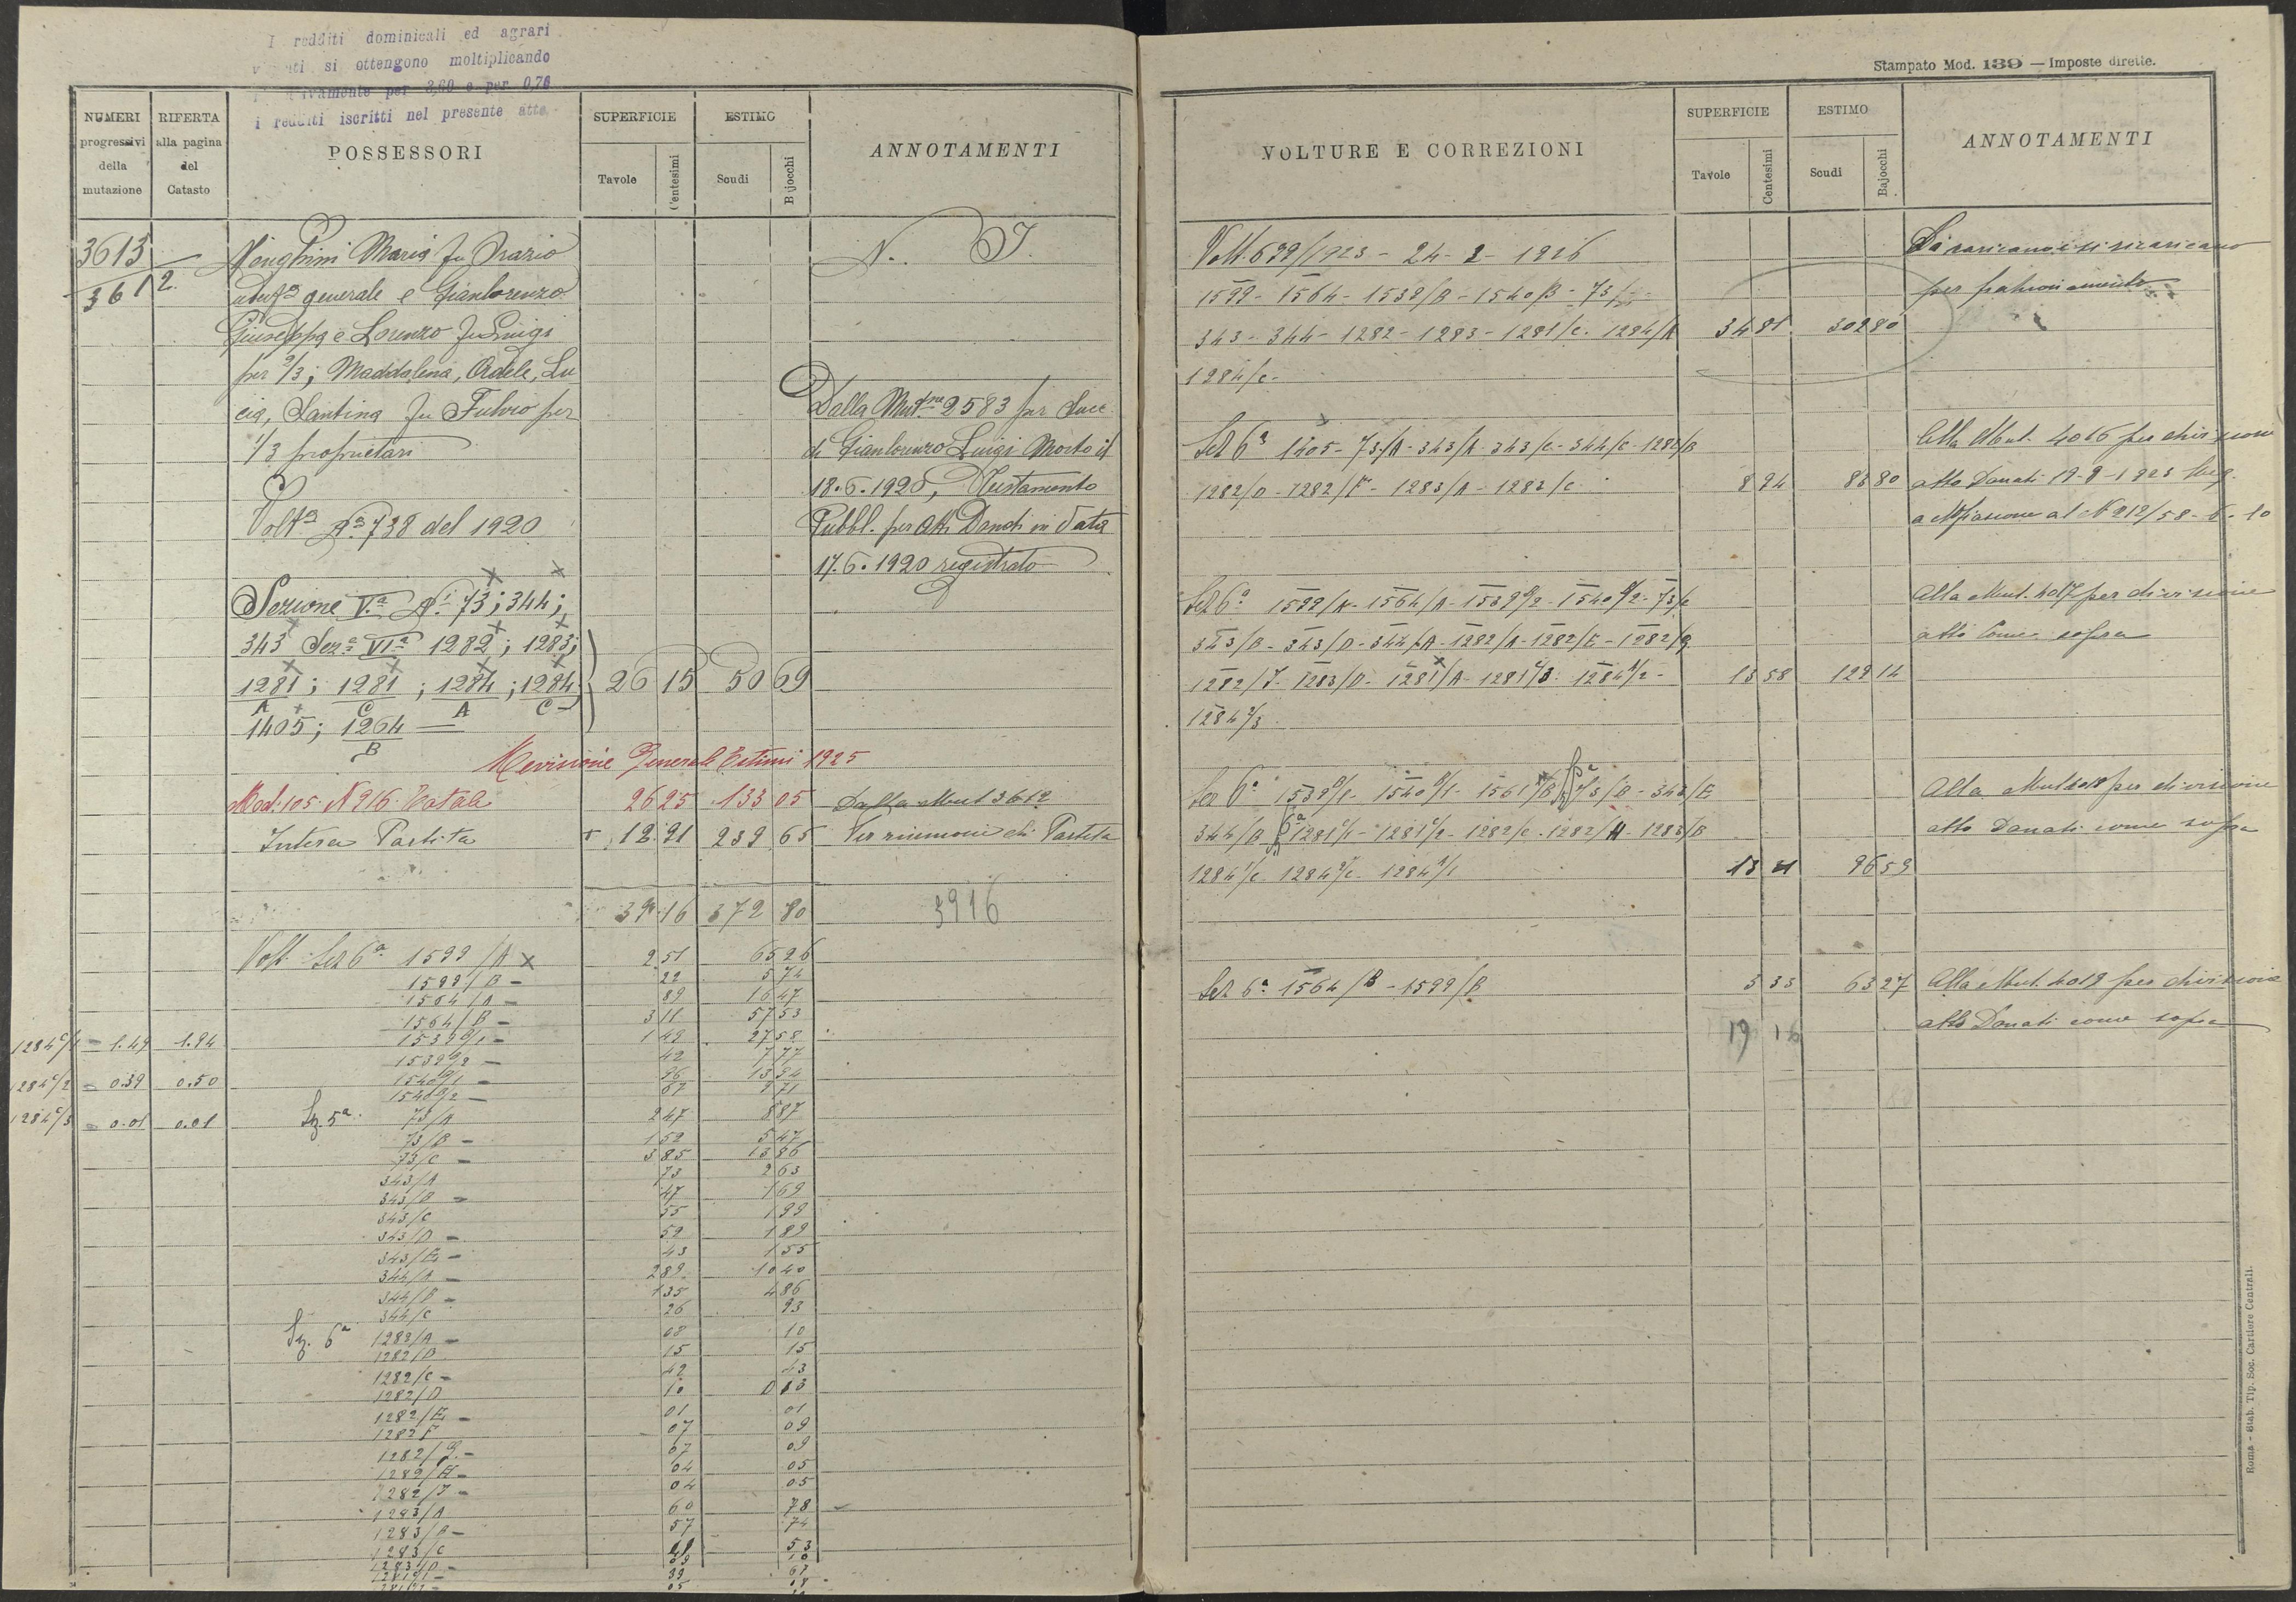 I redditi dominicali ed agrari
si ottengono moltiplicando
per 3,60 e per 0,76
i redditi iscritti nel presente atto
NUMERI
progressivi
della
mutazione
RIFERTA
alla pagina
del
Catasto
POSSESSORI
SUPERFICIE
Tavole
Centesimi
ESTIMO
Scudi
Bajocchi
ANNOTAMENTI
3613
3612
Maria fu Orazio
generale e Gianlorenzo
Giuseppa e Lorenzo fu Luigi
per 2/3; Maddalena, Adele, Lu
cia, Santina fu Fulvio per
1/3 proprietari
Voltª Nº 738 del 1920
N. I.
Dalla Mutne 2583 per Succ
di Gianlorenzo Luigi Morto il
18.6.1920, Testamento
Pubbl. per Atti Donati in data
17.6.1920 registrato
Sezione V.ª Ni 73; 344;
343 Sezª VIª 1282; 1283;
1281/A; 1281/C; 1284/A; 1284/C 26 15 50 69
1405; 1264/B
Revisione Generale Estimi 1925
Mod. 105. N 916. Totale 26 25 133 05 Dalla Mut 3612
Intera Partita + 12.91 239 65 Per riunione di Partita
39 16 372 80 3916
Volt. Sez 6ª 1599/A x 2 51 65 26
1599/B - 22 5 74
1564/A - 89 16 47
1564/B - 3 11 57 53
1539/1 - 1 49 27 58
1284 c/1 = 1.49 1.94
1539/2 - 42 7 77
1540/1 - 96 13 94
1284 c/2 = 0.39 0.50
1540/2 - 67 9 71
1284 c/3 = 0.01 0.01
Sez. 5ª 73/A 2 47 8 87
73/B - 1 52 5 47
73/C - 3 85 13 86
343/A 73 2 63
343/B - 47 1 69
343/C 55 1 99
343/D - 52 1 89
343/E - 43 1 55
344/A - 2 89 10 40
344/B - 1 35 4 86
344/C 26 93
Sez. 6ª 1282/A - 08 10
1282/B 15 15
1282/C - 42 43
1282/D 10 0 13
1282/E - 01 01
1282 F 07 09
1282/G - 07 09
1282/H - 04 05
1282/I - 04 05
1283/A 60 78
1283/B - 57 74
1283/C 41 53
1283/D -
Stampato Mod. 139 — Imposte dirette.
VOLTURE E CORREZIONI
SUPERFICIE
Tavole
Centesimi
ESTIMO
Scudi
Bajocchi
ANNOTAMENTI
Volt. 699/1923 - 24-2-1926
Si caricano e si scaricano
1599 - 1564 - 1539/B - 1540/B - 73
per frazionamento
343 - 344 - 1282 - 1283 - 1281/C - 1284/A 34 81 302 80
1284/C -
Sez 6ª 1405 - 73/A - 343/A - 343/C - 344/C - 1282/B
Alla Mut. 4016 per divisione
1282/D - 1282/F - 1283/A - 1283/C 8 94 83 80 atto Donati 19-9-1923 Reg.
al N 212/58-
Sez 6ª 1599/A - 1564/A - 1539/2 - 1540/2 - 73/C
Alla Mut. 4017 per divisione
343/B - 343/D - 344/A - 1282/A - 1282/E - 1282/G
atto Come sopra
1282/I - 1283/D - 1281/A - 1281/3 - 1284/2 - 13 58 129 14
1284/3
Sez 6ª 1539/1 - 1540/1 - 1561/B 5ª 73/B - 343/E
Alla Mut 4018 per divisione
344/B 6ª 1281/1 - 1281/2 - 1282/C - 1282/H - 1283/B
atto Donati come sopra
1284/C - 1284/C - 1284/1 13 21 96 59
Sez 6ª 1564/B - 1599/B 3 33 63 27 Alla Mut. 4019 per divisione
atto Donati come sopra
Roma - Stab. Tip. Soc. Cartiere Centrali.